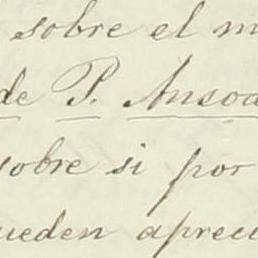 sobre el m
de P. Ansoa
sobre si por
ueden apreci